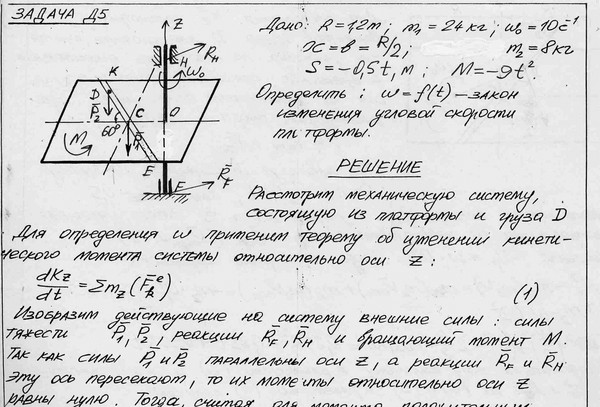 ЗАДАЧА Д5
Дано: R = 1,2 m; m₁ = 24 кг; ω₀ = 10 c⁻¹
x = b = R/2; m₂ = 8 кг
S = -0,5t, м; M = -9t².
Определить: ω = f(t) - закон
изменения угловой скорости
платформы.
РЕШЕНИЕ
Рассмотрим механическую систему,
состоящую из платформы и груза D
Для определения ω применим теорему об изменении кинети-
ческого момента системы относительно оси Z:
dKz/dt = Σmz(F̄ₖᵉ) (1)
Изобразим действующие на систему внешние силы: силы
тяжести P̄₁, P̄₂, реакции R̄F, R̄H и вращающий момент M.
Так как силы P̄₁ и P̄₂ параллельны оси z, а реакции R̄F и R̄H
эту ось пересекают, то их моменты относительно оси z
равны нулю. Тогда, считая для момента положительным
Z
H
R̄H
ω₀
K
D
P̄₂
C
O
60°
P̄₁
M
E
F
R̄F